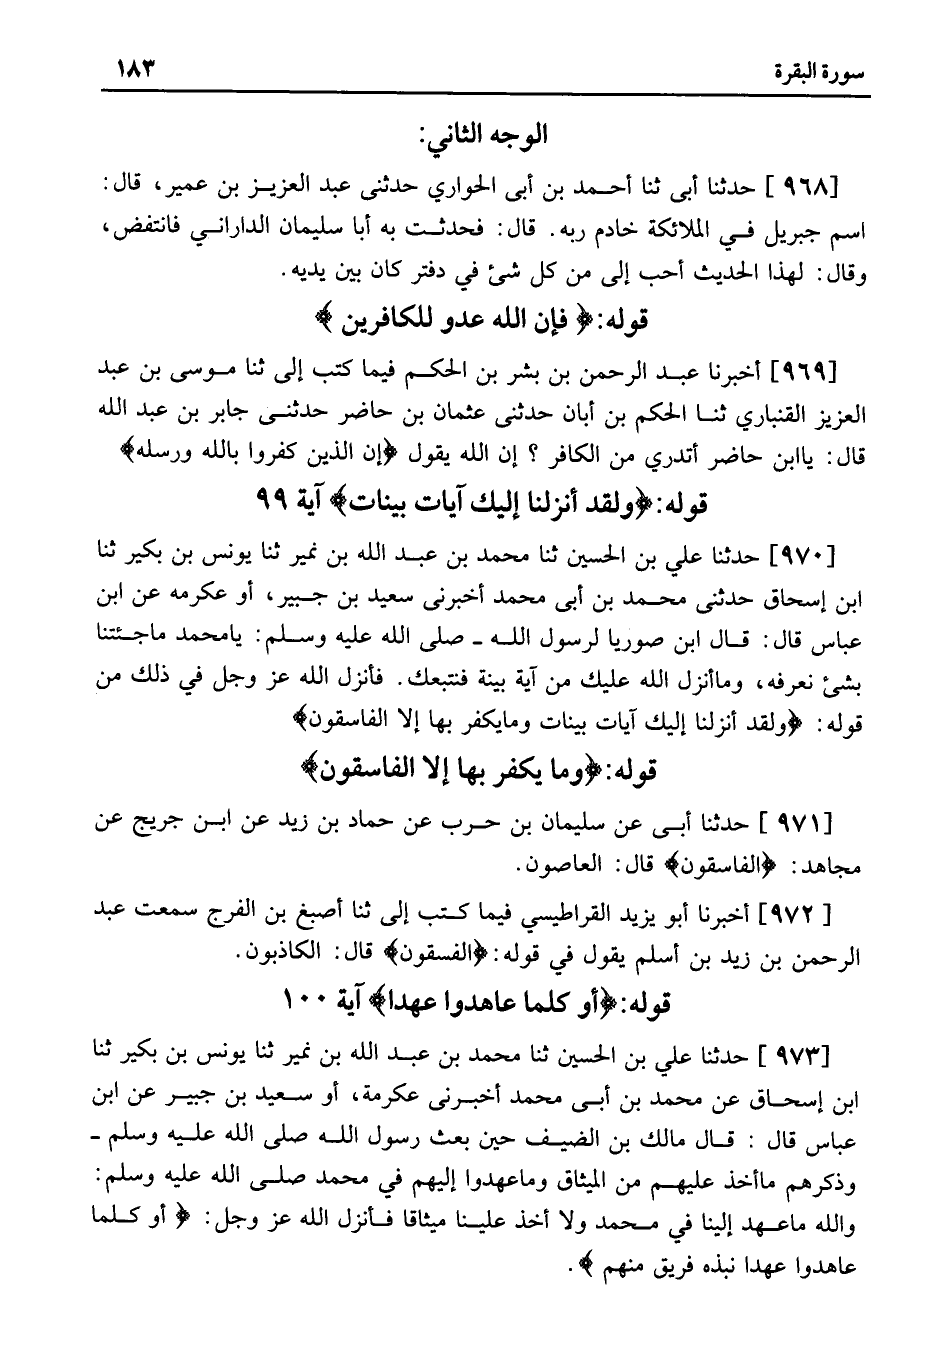 سورة البقرة ١٨٣
الوجه الثاني:
[٩٦٨ ] حدثنا أبى ثنا أحـمد بن أبى الحواري حدثنى عبد العزيـز بن عمير، قال:
اسم جبريل فـي الملائكة خادم ربه. قال: فحدثـت به أبا سليمان الدارانـي فانتفض،
وقال: لهذا الحديث أحب إلى من كل شئ في دفتر كان بين يديه.
قوله:﴿ فإن الله عدو للكافرين ﴾
[٩٦٩] أخبرنا عبـد الرحمن بن بشر بن الحكـم فيما كتب إلى ثنا مـوسى بن عبد
العزيز القنباري ثنـا الحكم بن أبان حدثنى عثمان بن حاضر حدثنـى جابر بن عبد الله
قال: ياابن حاضر أتدري من الكافر ؟ إن الله يقول ﴿إن الذين كفروا بالله ورسله﴾
قوله:﴿ولقد أنزلنا إليك آيات بينات﴾ آية ٩٩
[٩٧٠] حدثنا علي بن الحسين ثنا محمد بن عبـد الله بن نمير ثنا يونس بن بكير ثنا
ابن إسحاق حدثنى محـمد بن أبى محمد أخبرنى سعيد بن جـبير، أو عكرمه عن ابن
عباس قال: قـال ابن صوريا لرسول اللـه ـ صلى الله عليه وسـلم: يامحمد ماجـئتنا
بشئ نعرفه، وماأنزل الله عليك من آية بينة فنتبعك. فأنزل الله عز وجل في ذلك من
قوله: ﴿ولقد أنزلنا إليك آيات بينات ومايكفر بها إلا الفاسقون﴾
قوله:﴿وما يكفر بها إلا الفاسقون﴾
[٩٧١ ] حدثنا أبـى عن سليمان بن حـرب عن حماد بن زيد عن ابـن جريج عن
مجاهد: ﴿الفاسقون﴾ قال: العاصون.
[ ٩٧٢] أخبرنا أبو يزيد القراطيسي فيما كـتب إلى ثنا أصبغ بن الفرج سمعت عبد
الرحمن بن زيد بن أسلم يقول في قوله:﴿الفسقون﴾ قال: الكاذبون.
قوله:﴿أو كلما عاهدوا عهدا﴾ آية ١٠٠
[٩٧٣ ] حدثنا علي بن الحسين ثنا محمد بن عبـد الله بن نمير ثنا يونس بن بكير ثنا
ابن إسحـاق عن محمد بن أبـى محمد أخبـرنى عكرمة، أو سـعيد بن جبيـر عن ابن
عباس قال : قـال مالك بن الضيـف حين بعث رسول اللـه صلى الله علـيه وسلم ـ
وذكرهم ماأخذ عليهـم من الميثاق وماعهدوا إليهم في محمد صلـى الله عليه وسلم:
والله ماعـهد إلينا في مـحمد ولا أخذ عليـنا ميثاقا فـأنزل الله عز وجل: ﴿ أو كـلما
عاهدوا عهدا نبذه فريق منهم ﴾.